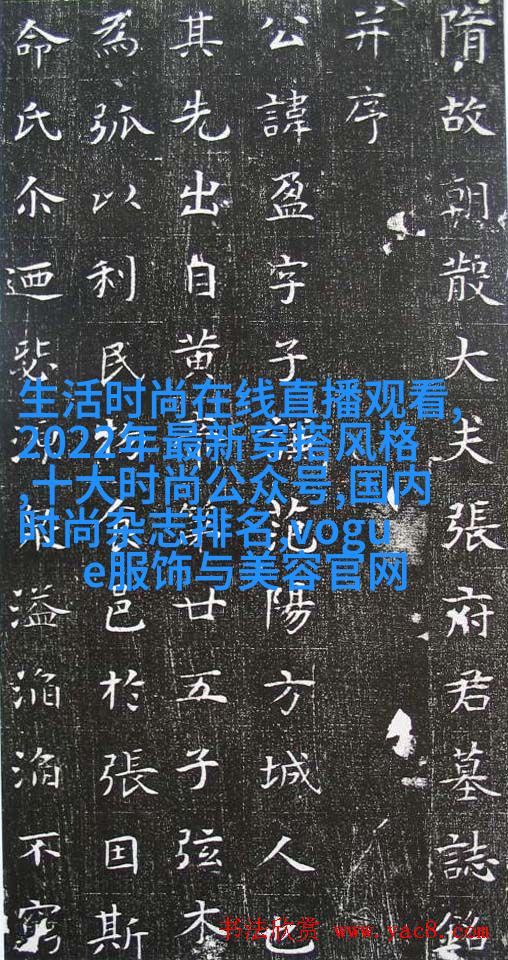 隋故朝散大夫張府君墓誌銘
并序
公諱盈字子范陽方城人也
其先出自黃廿五子弦木
為弧以利民食邑於張因斯
命氏尒迺源溢滔滔不窮
生活时尚在线直播观看,
2022年最新穿搭风格
,十大时尚公众号,国内
时尚杂志排名,vogu
e服饰与美容官网
书法欣赏 www.yac8.com